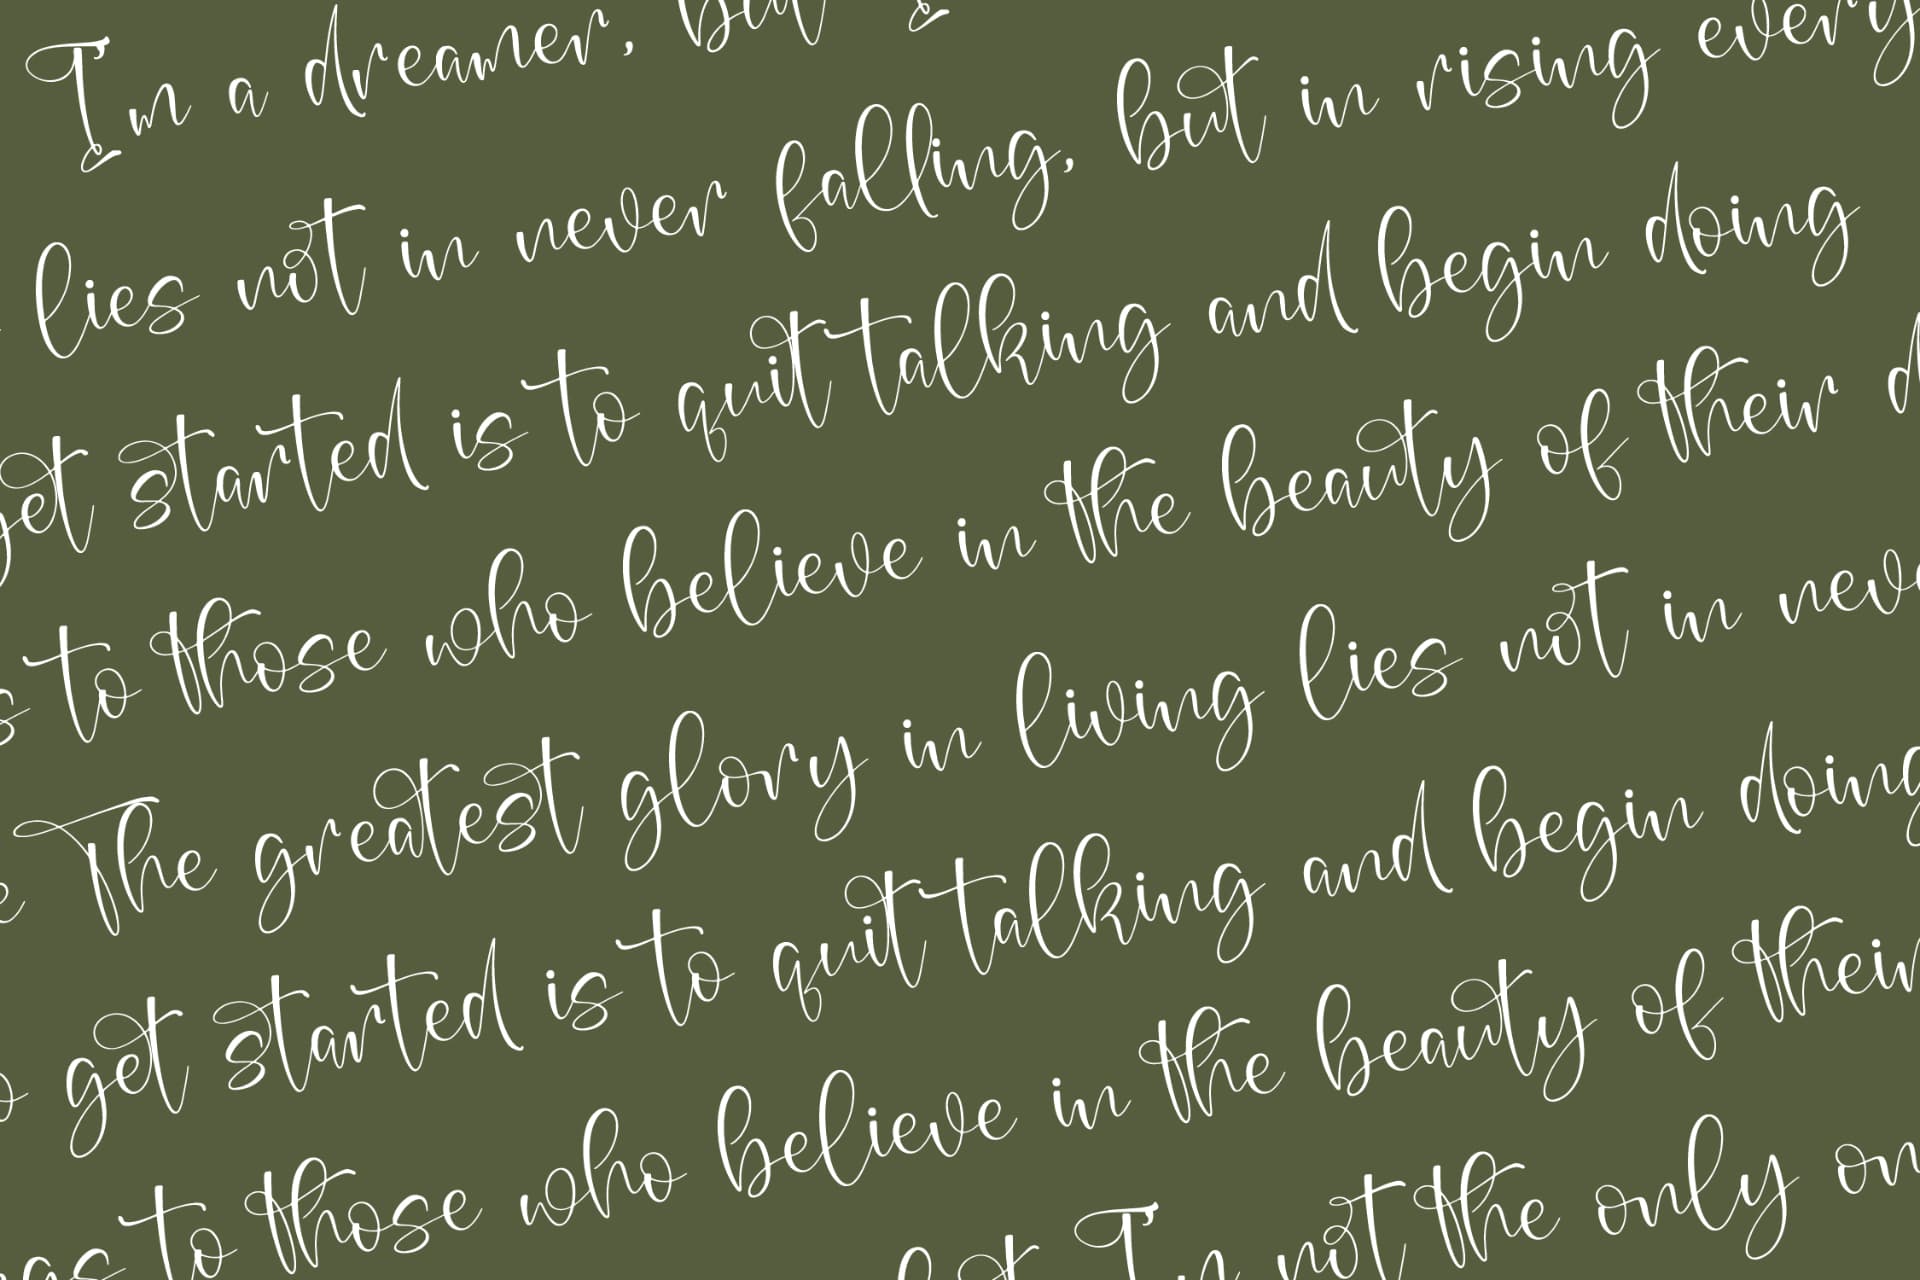 Im a dreamer, but I
lies not in never falling, but in rising every
get started is to quit talking and begin doing
to those who believe in the beauty of their
The greatest glory in living lies not in neve
get started is to quit talking and begin doing
to those who believe in the beauty of their
Im not the only on